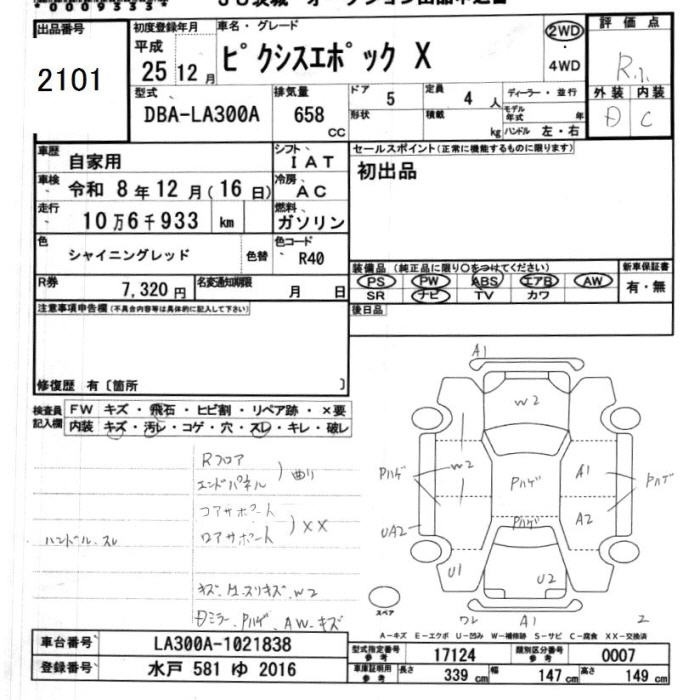 出品番号
2101
初度登録年月
平成
25 12 月
車名・グレード
ピクシスエポック X
2WD
・
4WD
評価点
R1
外装 内装
D C
型式
DBA-LA300A
排気量
658
CC
ドア
5
形状
定員
4 人
積載
kg
ディーラー・並行
モデル年式 年
ハンドル 左・右
車歴
自家用
シフト
IAT
車検
令和 8 年 12 月 ( 16 日)
冷房
AC
走行
10万6千933 km
燃料
ガソリン
色
シャイニングレッド
色替
色コード
R40
R券
7,320 円
名変通知期限
月 日
セールスポイント(正常に機能するものに限ります)
初出品
装備品 (純正品に限り○をつけてください)
PS PW ABS エアB AW
SR ナビ TV カワ
新車保証書
有・無
後日品
注意事項申告欄(不具合内容等は具体的に記入して下さい)
修復歴 有〔箇所 〕
検査員記入欄
FW キズ・飛石・ヒビ割・リペア跡・×要
内装 キズ・汚レ・コゲ・穴・スレ・キレ・破レ
Rフロア
エンドパネル
曲り
コアサポート
ロアサポート
XX
ハンドル スレ
キズ、
W2
Dミラー、Pハゲ、AW、キズ
A1
W2
W2
Pハゲ
Pハゲ
A1
Pハゲ
Pハゲ
A2
UA2
U1
U2
ワレ
A1
2
スペア
A-キズ E-エクボ U-凹み W-補修跡 S-サビ C-腐食 XX-交換済
車台番号
LA300A-1021838
登録番号
水戸 581 ゆ 2016
型式指定番号
参考
17124
類別区分番号
参考
0007
車庫証明用
参考
長さ 339 cm 幅 147 cm 高さ 149 cm